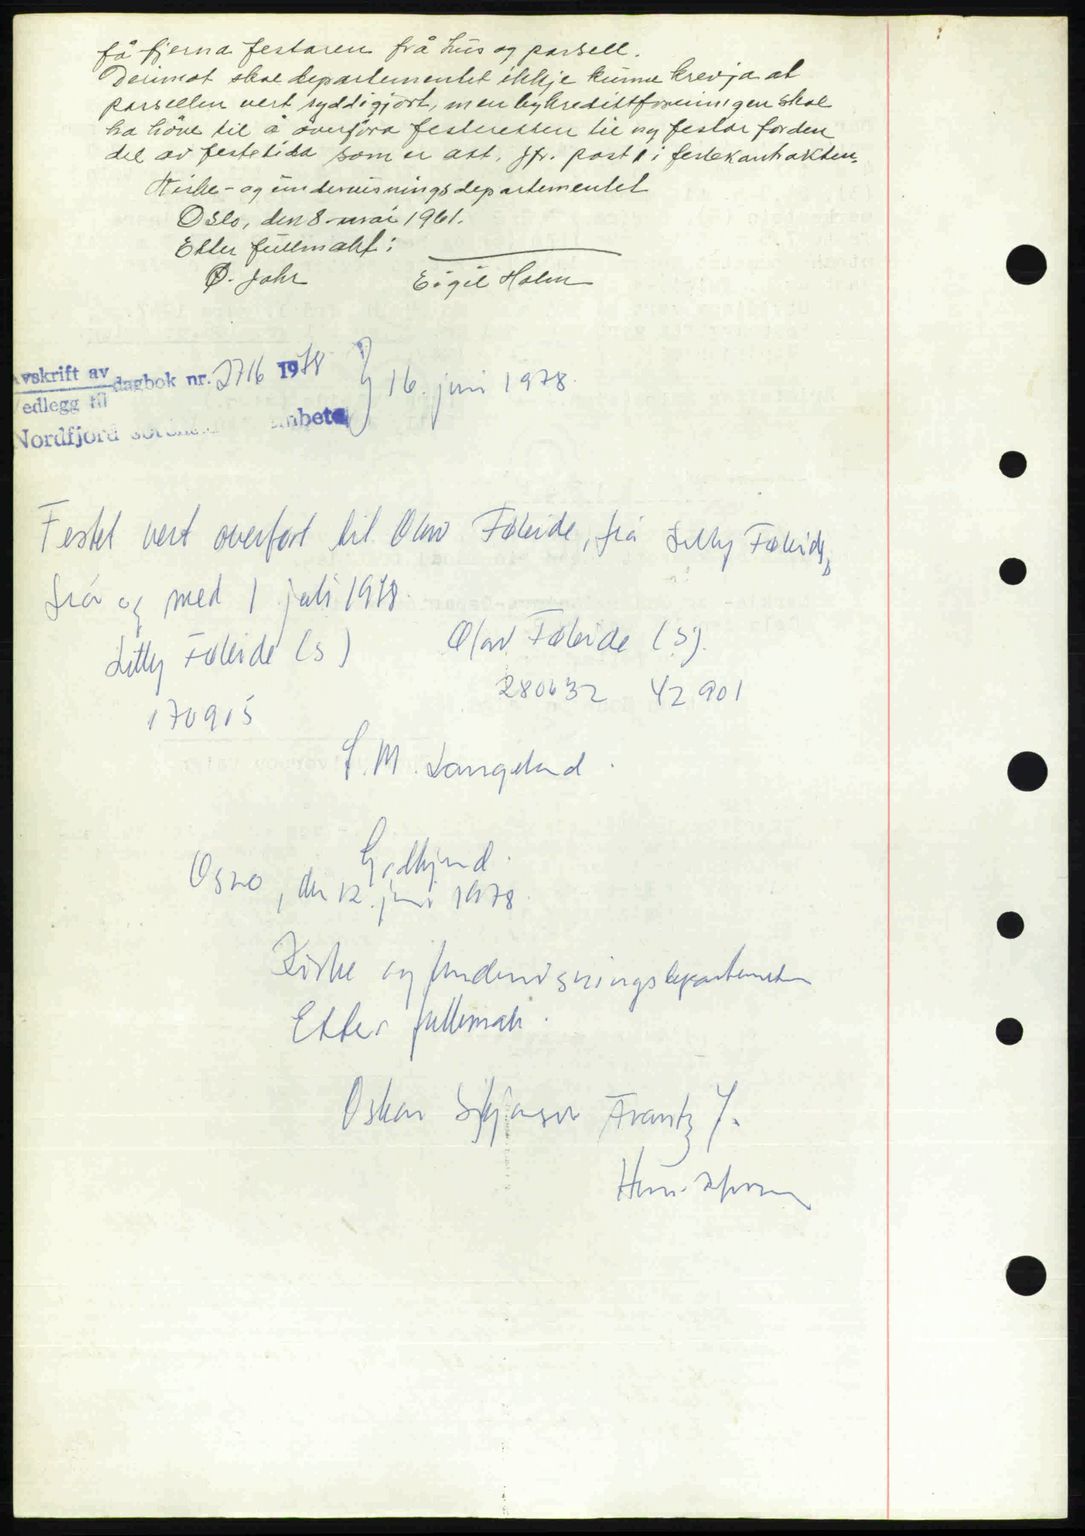 få fjerna festaren frå hus og parsell.
Derimot skal departementet ikkje kunne krevja at
parsellen vert ryddiggjort, men bykredittforeiningen skal
ha høve til å overføra festeretten til ny festar for den
del av festetida som er att. Jfr. post 1 i festekontrakten.
Kirke- og undervisningsdepartementet
Oslo, den 8 mai 1961.
Etter fullmakt:
Ø. Jahr Eigil Holm
Avskrift av
Vedlegg til dagbok nr. 2716 1978 16. juni 1978.
Nordfjord
Festet vert overført til Olav Føleide, frå Lilly Føleide,
frå og med 1 juli 1978.
Lilly Føleide (s) Olav Føleide (s).
170915 280632 42901
J. M. Langeland.
Godkjend.
Oslo, den 12. juni 1978.
Kirke og undervisningsdepartementet
Etter fullmakt.
Oskar Frantz J.